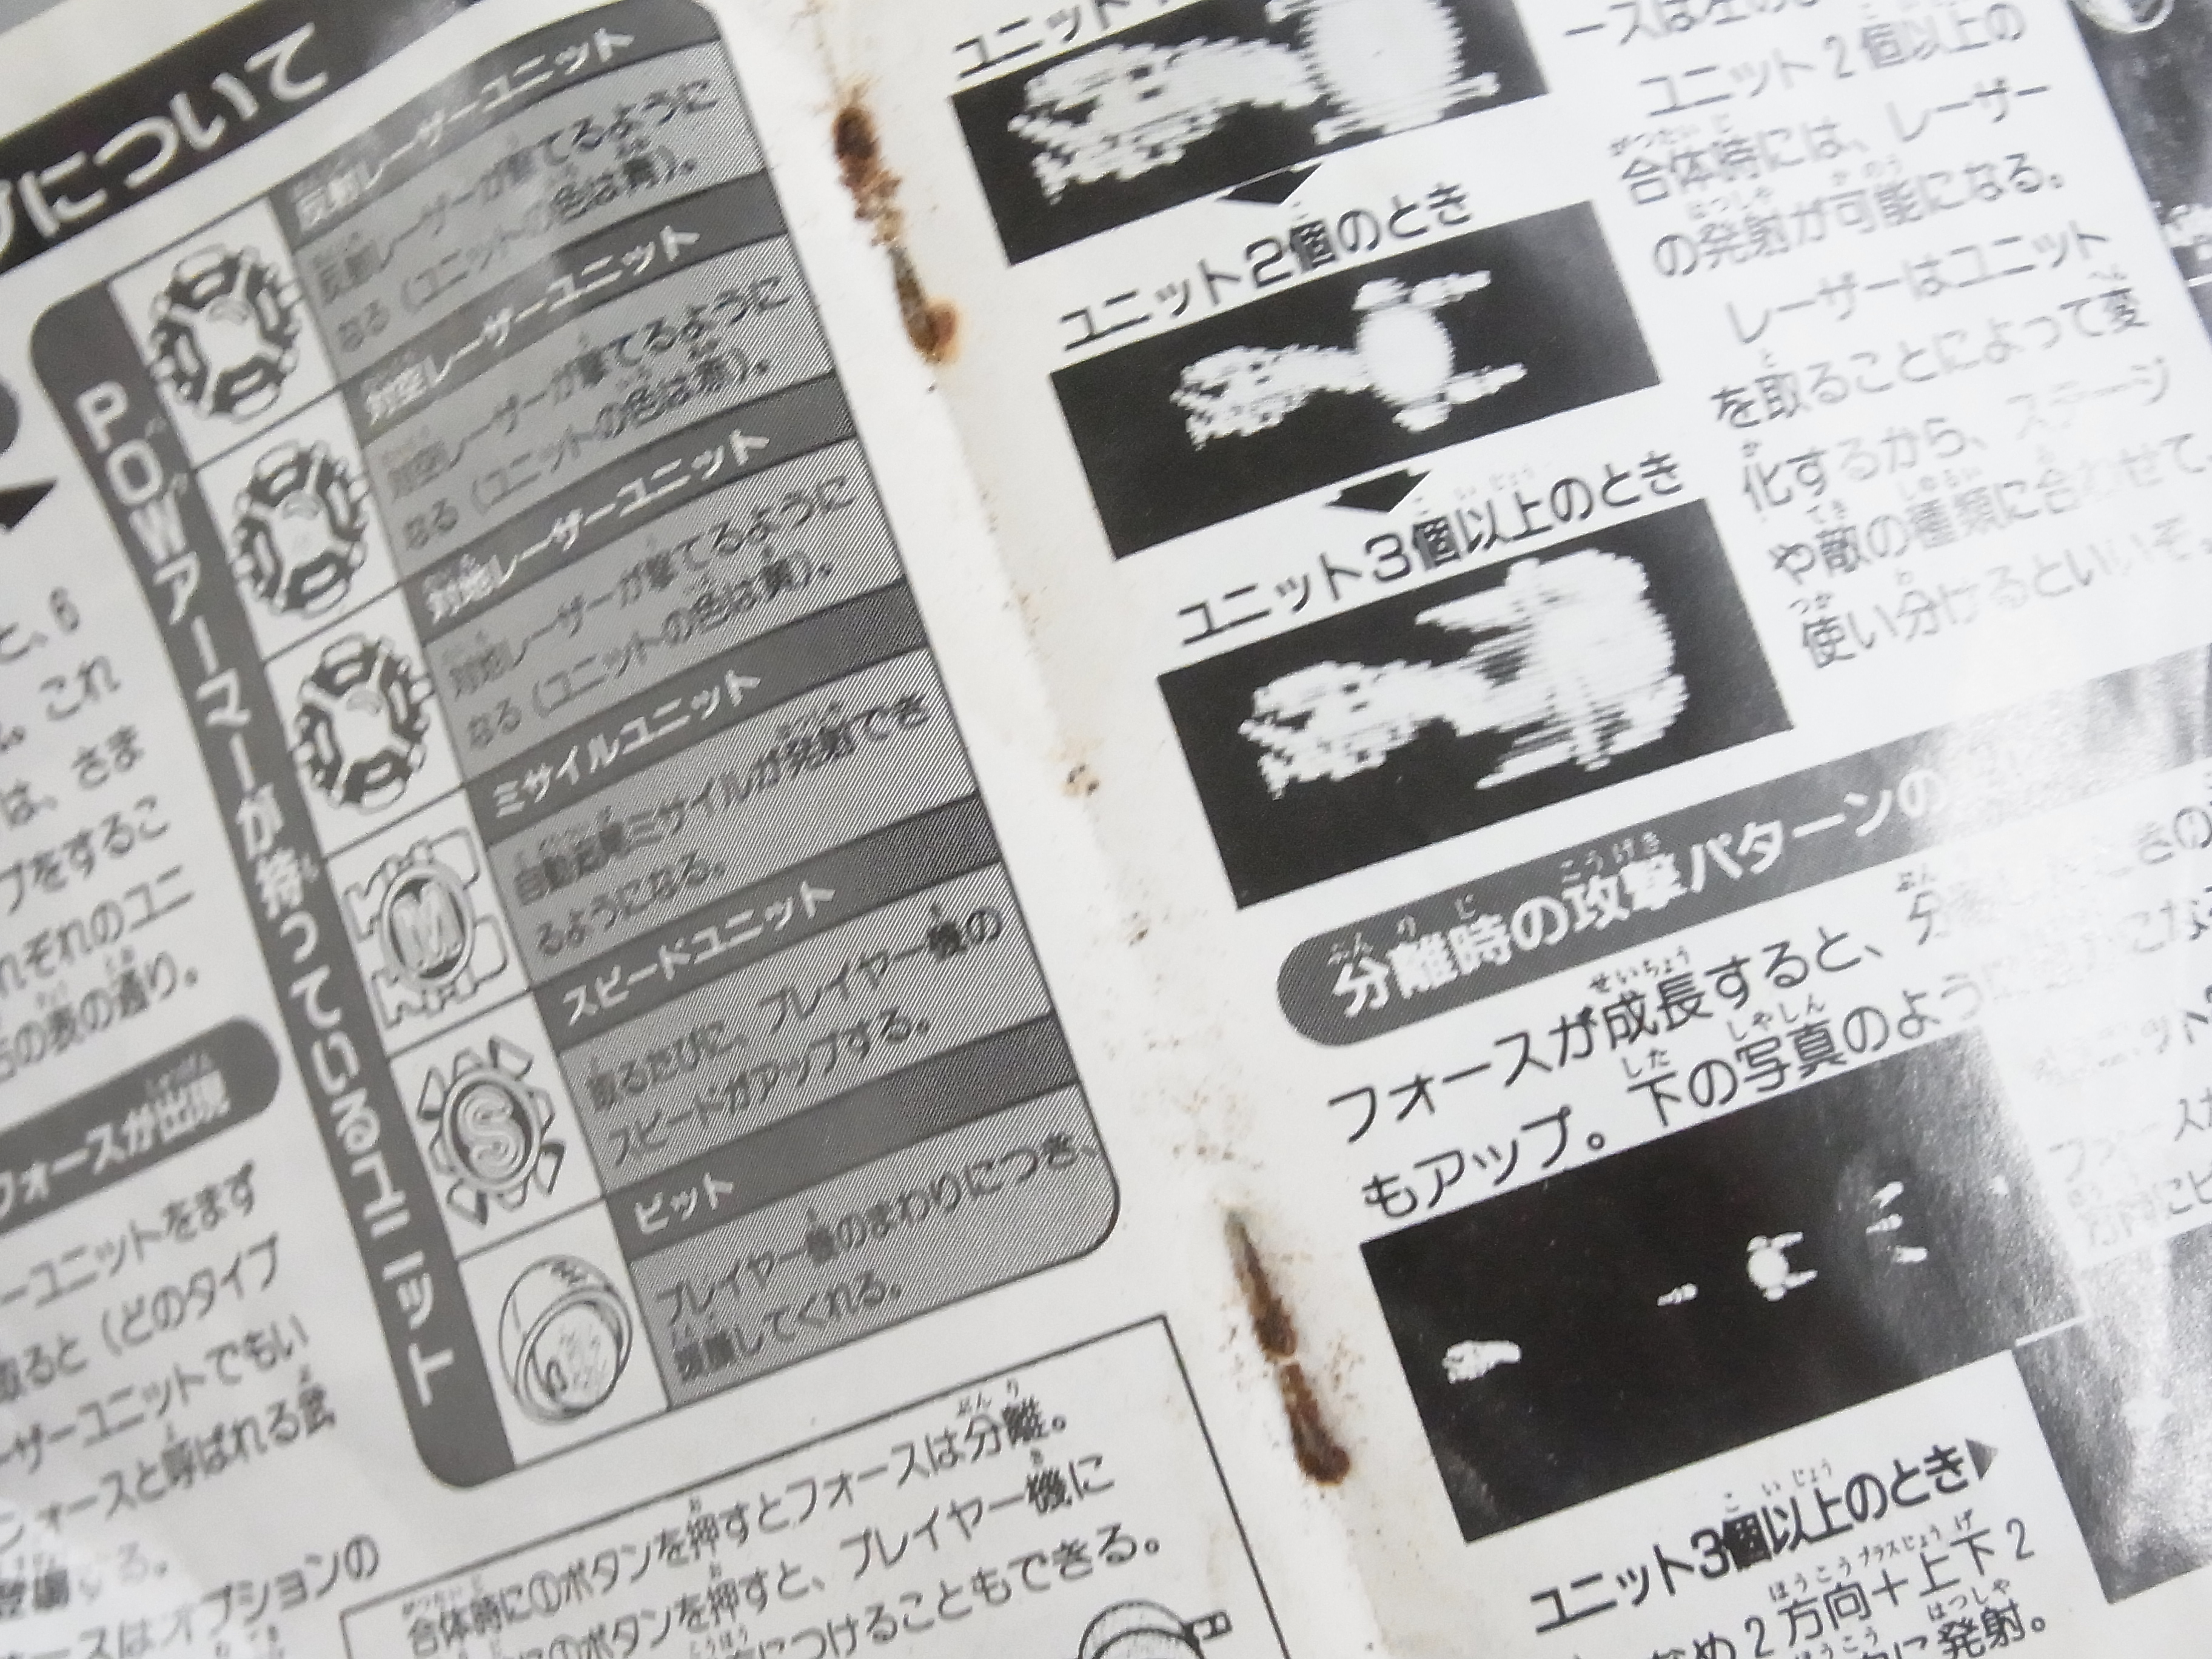 について
と、6
これ
は、さま
プをするこ
れぞれのユニ
の表の通り。
フォースが出現
ーユニットをまず
取ると（どのタイプ
ーザーユニットでもい
ォースと呼ばれる武
ースはオプションの
POWアーマーが持っているユニット
反射レーザーユニット
反射レーザーが撃てるように
なる（ユニットの色は青）。
対空レーザーユニット
対空レーザーが撃てるように
なる（ユニットの色は赤）。
対地レーザーユニット
対地レーザーが撃てるように
なる（ユニットの色は黄）。
M
ミサイルユニット
自動追尾ミサイルが発射でき
るようになる。
S
スピードユニット
取るたびに、プレイヤー機の
スピードがアップする。
ビット
プレイヤー機のまわりにつき、
援護してくれる。
合体時に①ボタンを押すとフォースは分離。
に①ボタンを押すと、プレイヤー機に
につけることもできる。
ユニット
ユニット2個のとき
ユニット3個以上のとき
ユニット2個以上の
合体時には、レーザー
の発射が可能になる。
レーザーはユニット
を取ることによって変
化するから、ステージ
や敵の種類に合わせて、
使い分けるといいぞ。
分離時の攻撃パターンの
フォースが成長すると、
もアップ。下の写真のよう
ユニット3個以上のとき▶
なめ2方向＋上下2
に発射。